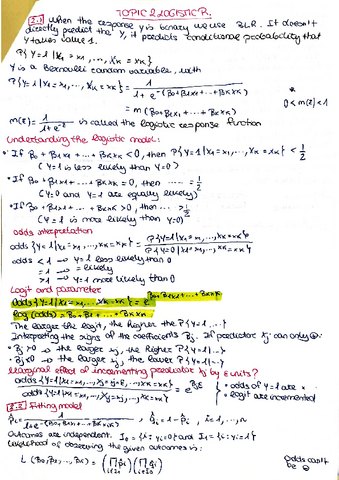 TOPIC 2 LOGISTIC R.
2.1 When the response y is binary we use BLR. It doesn't
directly predict the Y, it predicts conditional probability that
Y takes value 1.
Y | X1 = x1, ..., XK = xK
Y is a Bernoulli random variable, with
P{Y=1 | X1 = x1, ..., XK = xK} = 1 / (1 + e^-(β0+β1x1+...+βKxK))
= m(β0+β1x1+...+βKxK)
0 < m(z) < 1
m(z) = 1 / (1 + e^-z) is called the logistic response function
Understanding the logistic model:
* If β0 + β1x1 + ... + βKxK < 0, then P{Y=1 | X1=x1, ..., XK = xK} < 1/2
(Y=1 is less likely than Y=0)
* If β0 + β1x1 + ... + βKxK = 0, then ...... = 1/2
(Y=0 and Y=1 are equally likely)
* If β0 + β1x1 + ... + βKxK > 0, then ... > 1/2
(Y=1 is more likely than Y=0)
odds interpretation
odds {Y=1 | X1=x1, ..., XK=xK} = P{Y=1 | X1=x1, ..., XK=xK} / P{Y=0 | X1=x1, ..., XK=xK}
odds < 1 → y=1 less likely than 0
= 1 → = likely
> 1 → y=1 more likely than 0
Logit and parameter
odds {Y=1 | X1=x1, ..., XK=xK} = e^β0+β1x1+...+βKxK
log (odds) = β0 + β1x1 + ... + βKxK
The larger the logit, the higher the P{Y=1 ...}
Interpreting the signs of the coefficients βj. If predictor xj can only ⊕:
* βj > 0 → the larger xj, the higher P{Y=1 | ...}
* βj < 0 → the larger xj, the lower P{Y=1 ...}
Marginal effect of incrementing predictor xj by E units?
odds {Y=1 | X1=x1, ..., Xj=xj+E, ..., XK=xK} / odds {Y=1 | X1=x1, ..., Xj=xj, ..., XK=xK} = e^βjE
• odds of y=1 are ×
• logit are incremented
2.2 Fitting model
p̂i = 1 / (1 + e^-(β0+β1xi1+...+βKxiK)), q̂i = 1 - p̂i, i = 1, ..., n
Outcomes are independent. I0 = {i: yi = 0} and I1 = {i: yi = 1}
Likelihood of observing the given outcomes is:
L (β0, β1, ..., βK) = (∏i∈I1 p̂i)(∏i∈I0 q̂i)
Odds can't
be ⊖